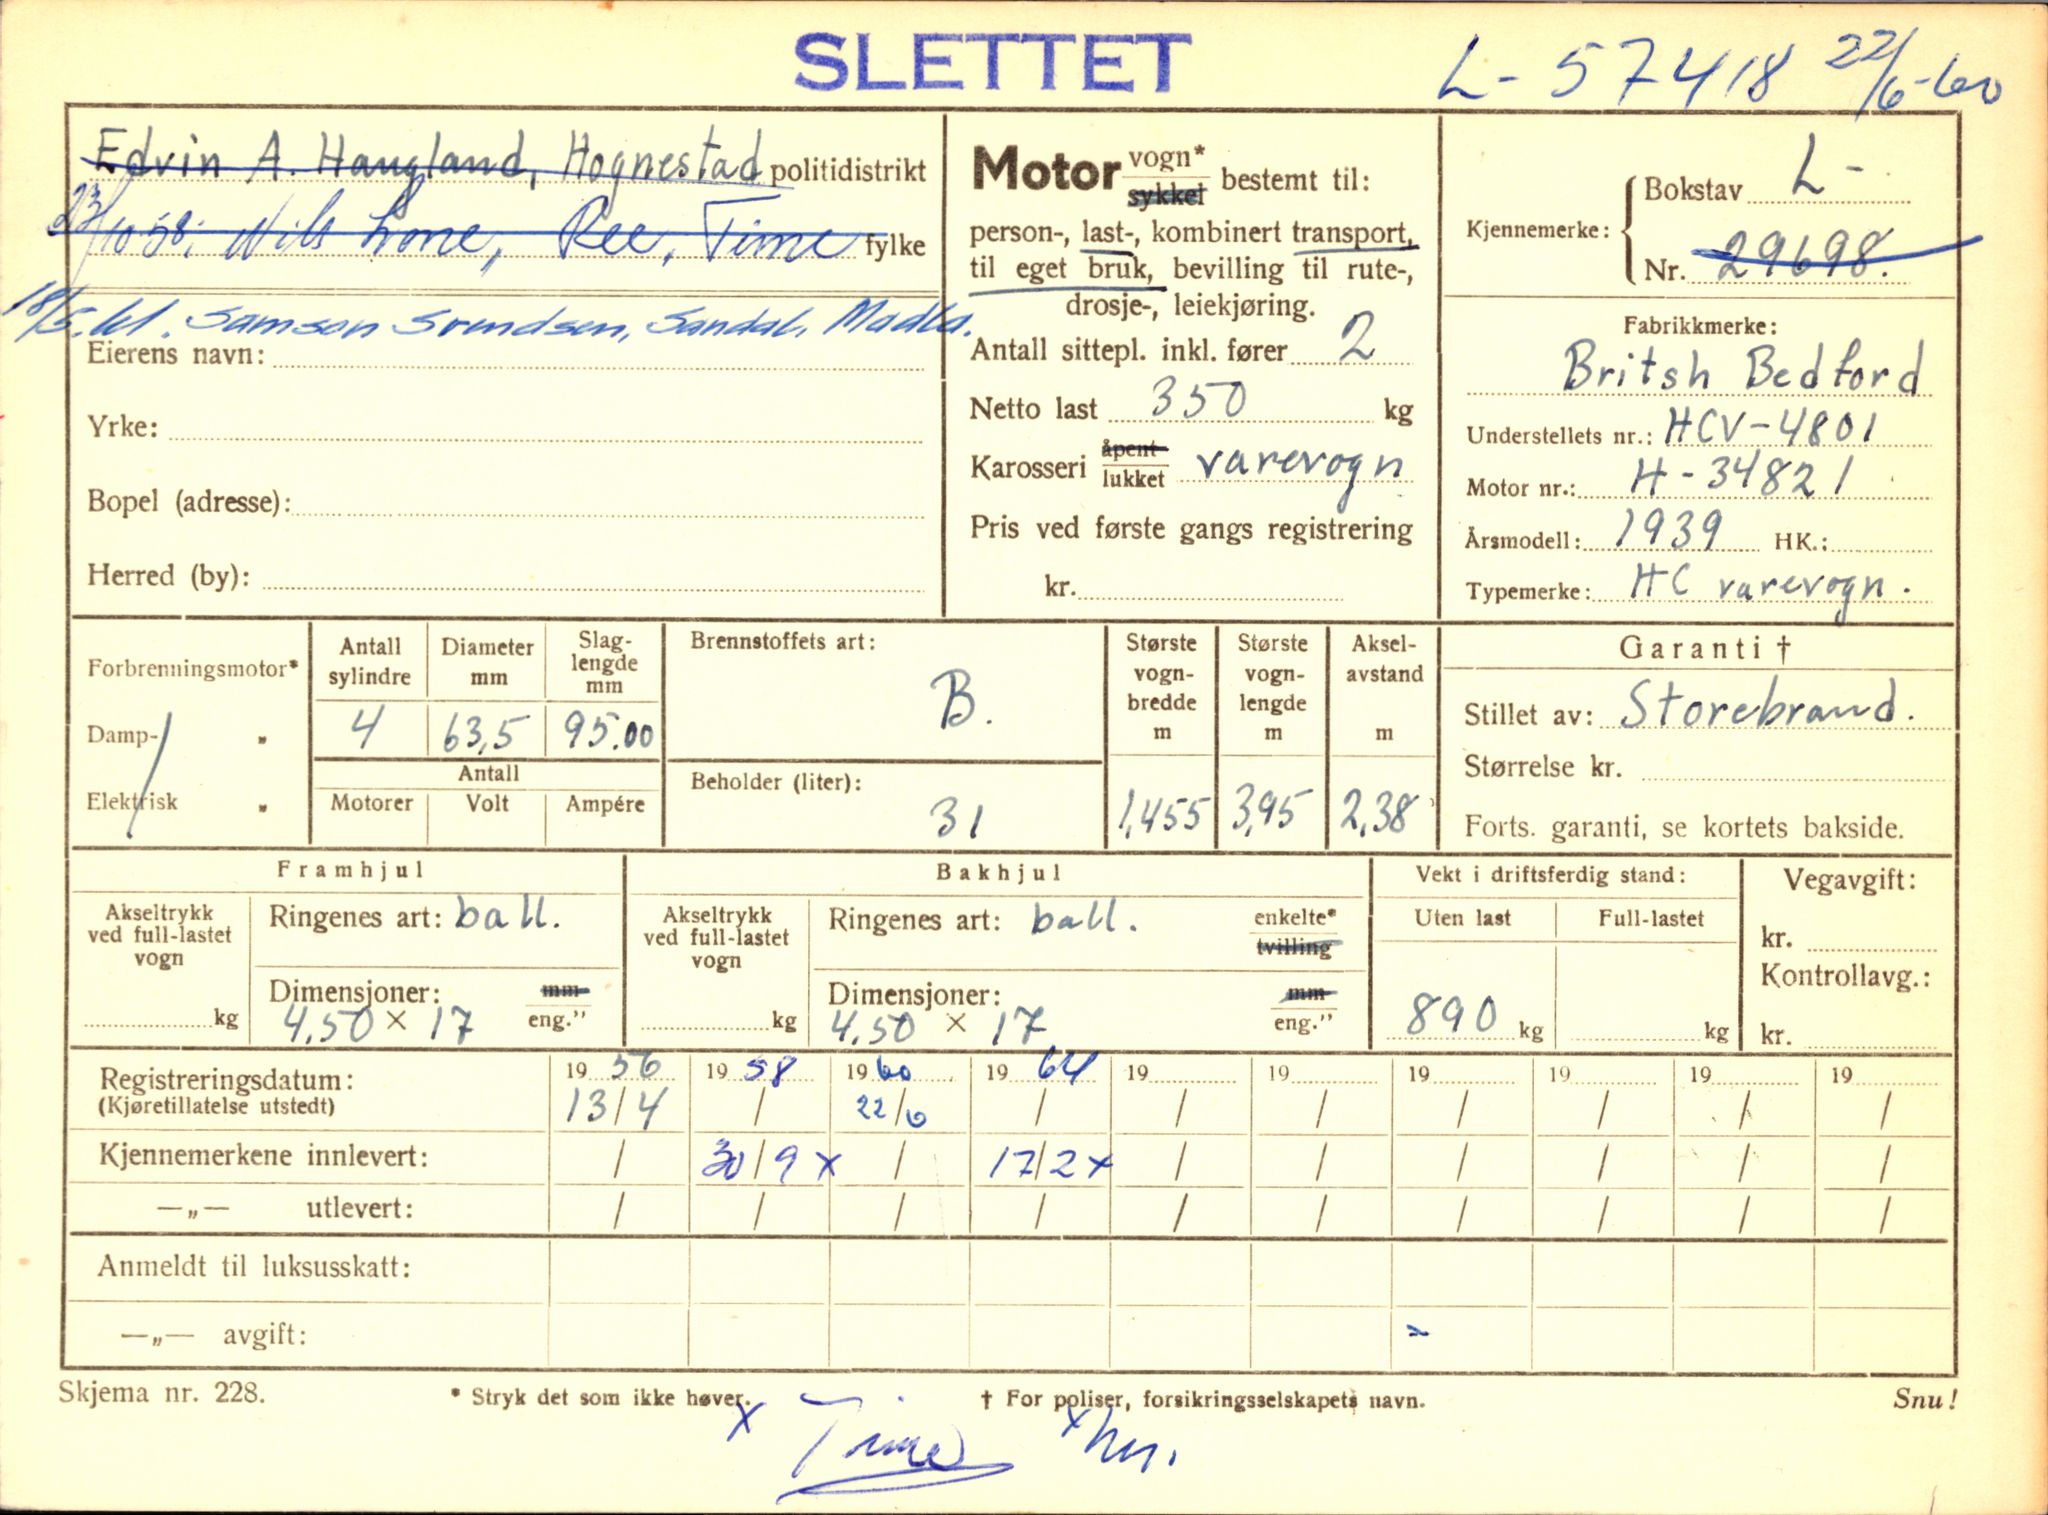 SLETTET
L- 57418 22/6-60
Edvin A. Haugland, Hognestad politidistrikt
23/10 58: Nils Lone, Ree, Time fylke
18/5.61. Samson Svendsen, Sandal, Madla.
Eierens navn:
Yrke:
Bopel (adresse):
Herred (by):
Motor vogn* sykkel bestemt til:
person-, last-, kombinert transport,
til eget bruk, bevilling til rute-,
drosje-, leiekjøring.
Antall sittepl. inkl. fører 2
Netto last 350 kg
Karosseri åpent lukket varevogn
Pris ved første gangs registrering
kr.
Kjennemerke: Bokstav L-
Nr. 29698.
Fabrikkmerke:
Britsh Bedford
Understellets nr.: HCV-4801
Motor nr.: H-34821
Årsmodell: 1939 HK.:
Typemerke: HC varevogn.
Forbrenningsmotor*
Damp- „
Elektrisk „
Antall sylindre 4
Diameter mm 63,5
Slag-lengde mm 95.00
Antall
Motorer Volt Ampére
Brennstoffets art:
B.
Beholder (liter):
31
Største vogn-bredde m 1,455
Største vogn-lengde m 3,95
Aksel-avstand m 2,38
Garanti †
Stillet av: Storebrand.
Størrelse kr.
Forts. garanti, se kortets bakside.
Framhjul
Akseltrykk ved full-lastet vogn kg
Ringenes art: ball.
Dimensjoner: mm
4,50 × 17 eng."
Bakhjul
Akseltrykk ved full-lastet vogn kg
Ringenes art: ball. enkelte* tvilling
Dimensjoner: mm
4,50 × 17 eng."
Vekt i driftsferdig stand:
Uten last Full-lastet
890 kg kg
Vegavgift:
kr.
Kontrollavg.:
kr.
Registreringsdatum: 1956 1958 1960 1964 19 19 19 19 19 19
(Kjøretillatelse utstedt) 13/4 / 22/6 / / / / / / /
Kjennemerkene innlevert: / 30/9 x / 17/2 x / / / / / /
—„— utlevert: / / / / / / / / / /
Anmeldt til luksusskatt:
—„— avgift:
Skjema nr. 228. * Stryk det som ikke høver. † For poliser, forsikringsselskapets navn. Snu!
x Time x